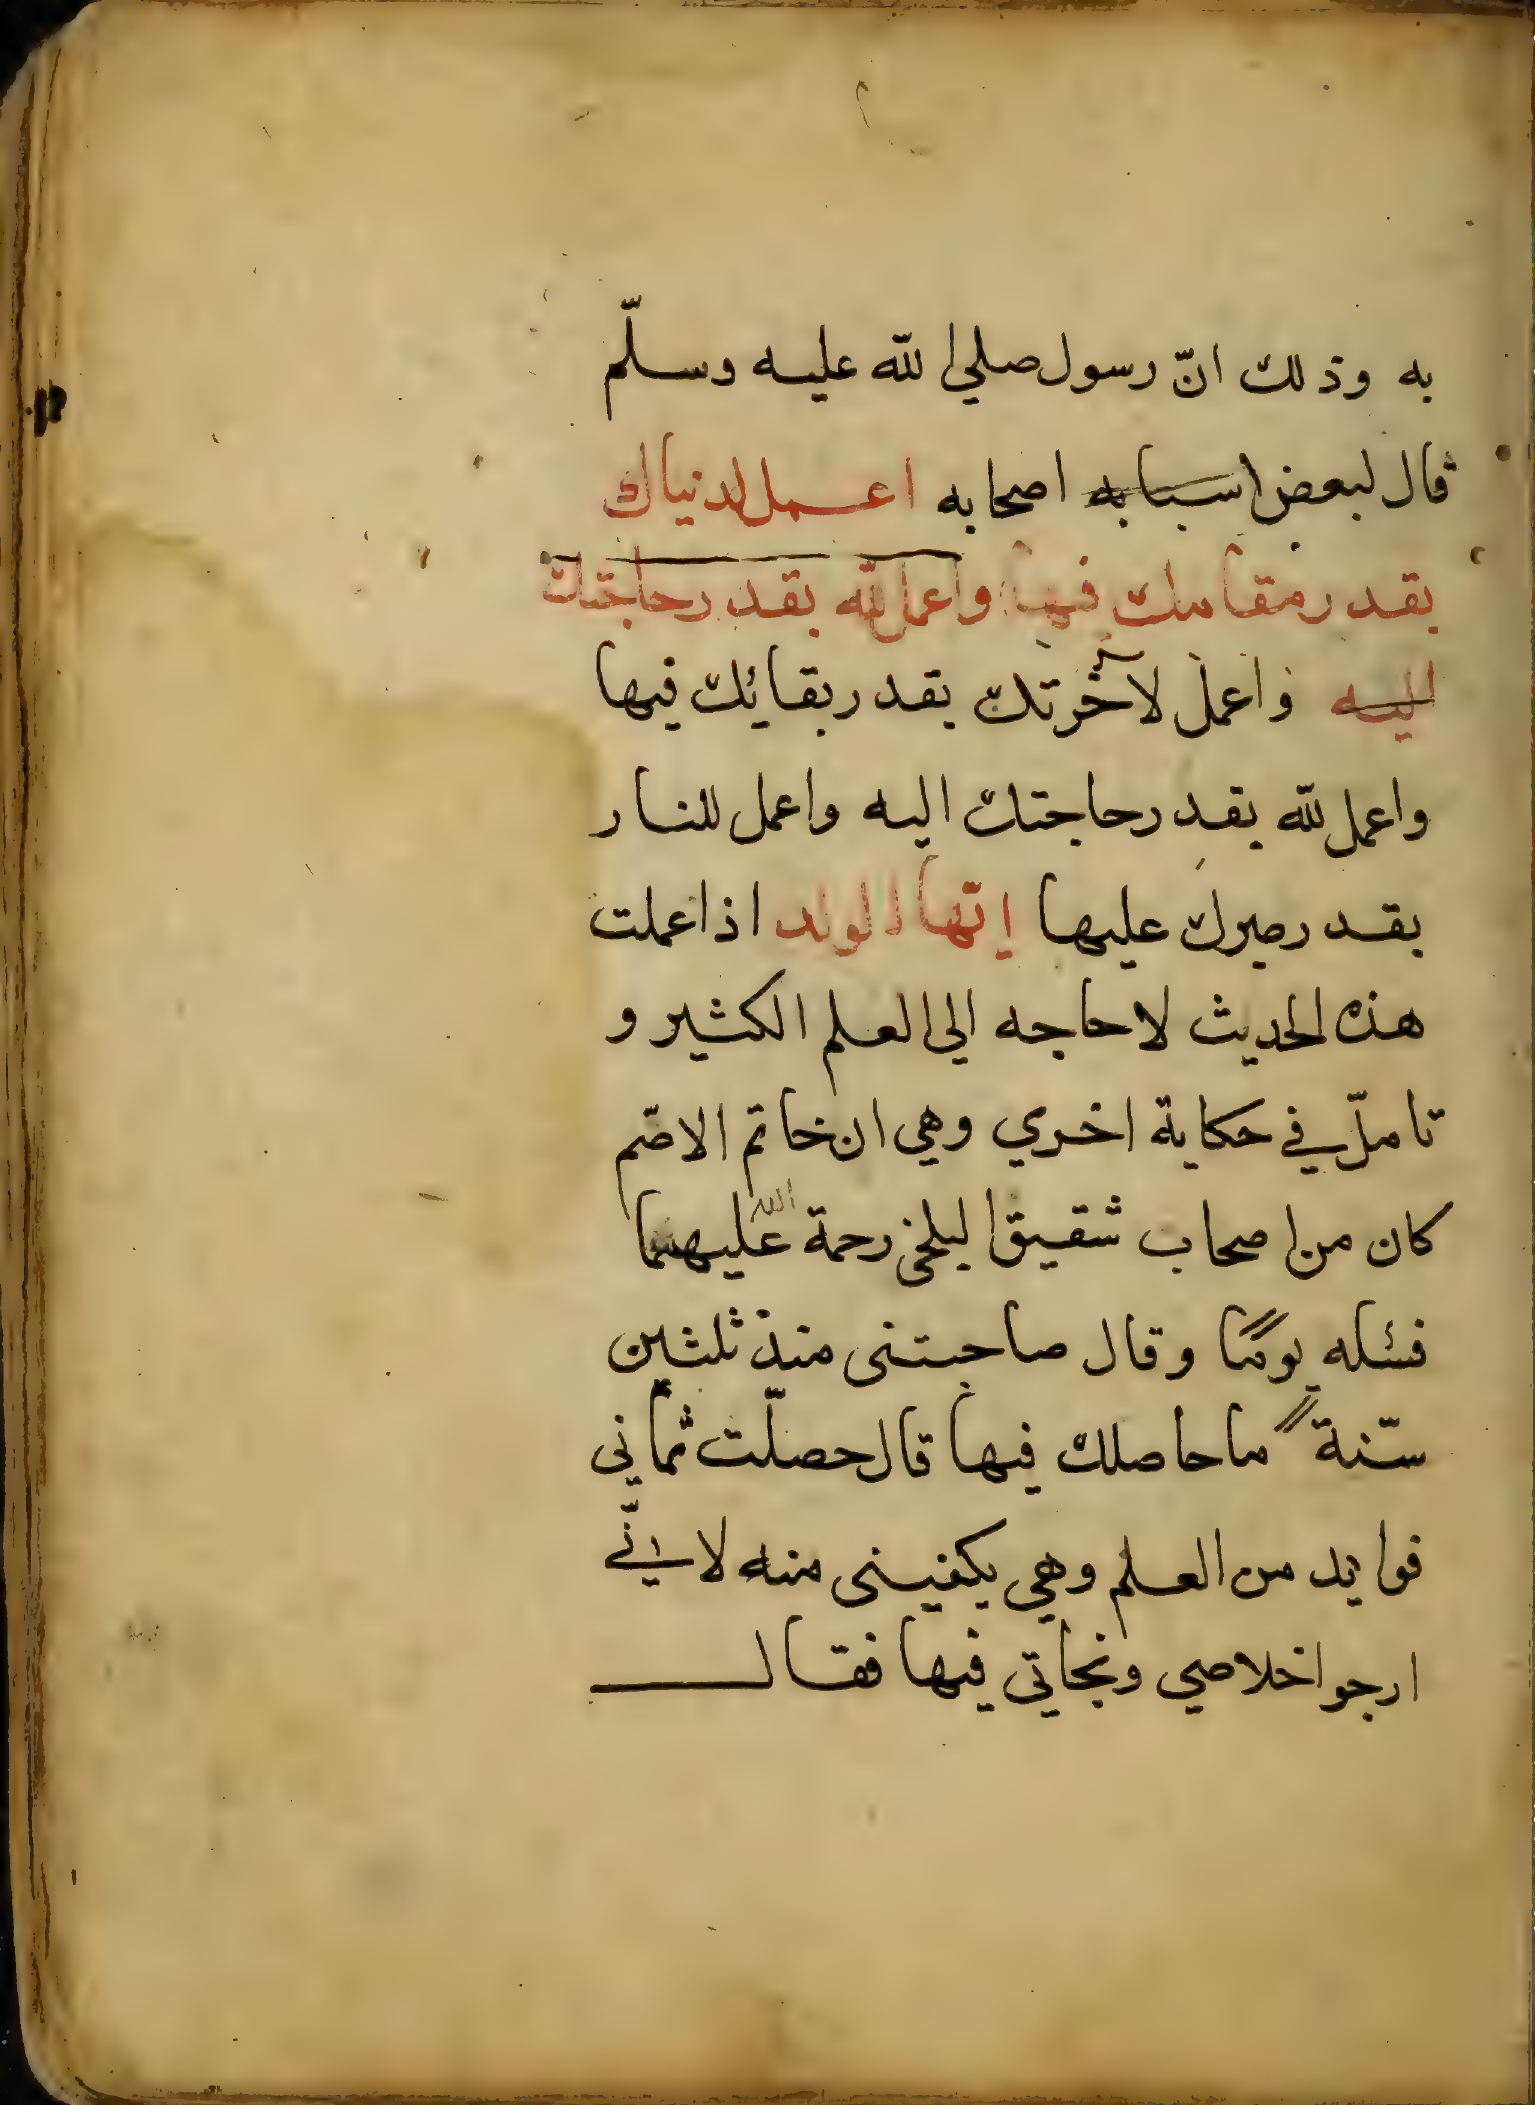 به وذلك انّ رسول صلي الله عليه وسلّم
قال لبعض اسبابه اصحابه اعمل لدنياك
بقدر مقامك فيها واعمل لله بقدر حاجتك
اليه واعمل لآخرتك بقدر بقايئك فيها
واعمل لله بقدر حاجتك اليه واعمل للنار
بقدر صبرك عليها ايّها الولد اذا عملت
هذه الحديث لا حاجه الي العلم الكثير و
تاملّ في حكاية اخري وهي ان خاتم الاضم
كان من اصحاب شقيق البلخي رحمة الله عليهما
فسئله يومًا وقال صاحبتني منذ ثلثين
سّنة ما حاصلك فيها قال حصلّت ثماني
فوايد من العلم وهي يكفيني منه لانّي
ارجوا خلاصي ونجاتي فيها فقال